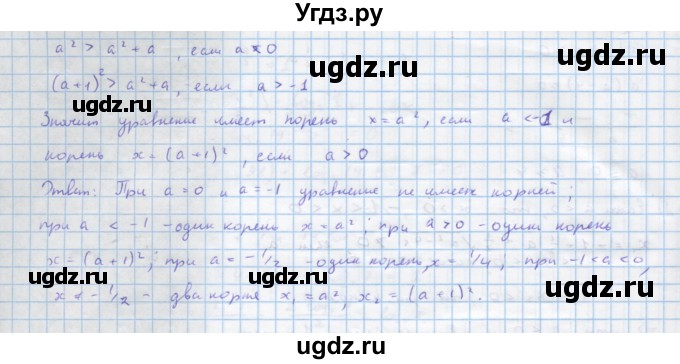 Угдз.ру
a² > a² + a , если a < 0
(a+1)² > a² + a, если a > -1
Значит уравнение имеет корень x = a², если a < -1 и
корень x = (a+1)², если a > 0
Ответ: При a = 0 и a = -1 уравнение не имеет корней;
при a < -1 - один корень x = a²; при a > 0 - один корень
x = (a+1)²; при a = -1/2 - один корень, x = 1/4; при -1 < a < 0,
x ≠ -1/2 - два корня x₁ = a², x₂ = (a+1)².
Угдз.ру